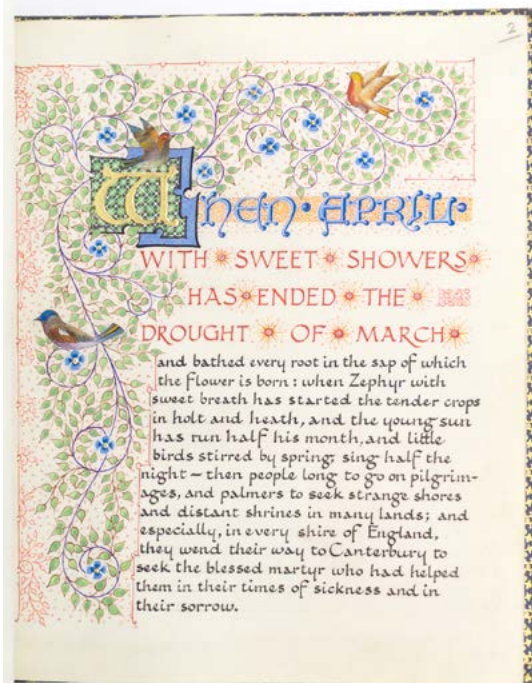 2
When·April·
WITH SWEET SHOWERS
HAS ENDED THE
DROUGHT OF MARCH
and bathed every root in the sap of which
the flower is born: when Zephyr with
sweet breath has started the tender crops
in holt and heath, and the young sun
has run half his month, and little
birds stirred by spring, sing half the
night — then people long to go on pilgrim-
ages, and palmers to seek strange shores
and distant shrines in many lands; and
especially, in every shire of England,
they wend their way to Canterbury to
seek the blessed martyr who had helped
them in their times of sickness and in
their sorrow.